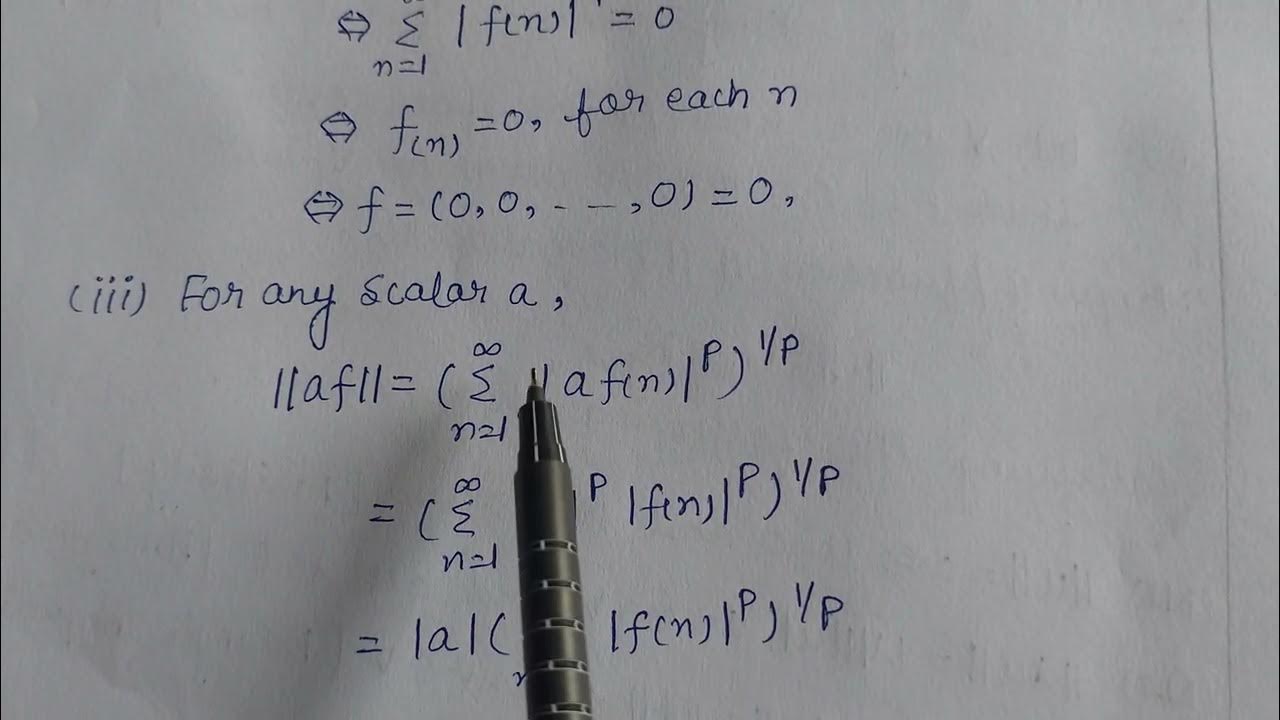 ⇔ ∑ₙ₌₁ |f(n)| = 0
⇔ f₍ₙ₎ = 0, for each n
⇔ f = (0, 0, - - -, 0) = 0,
(iii) For any scalar a,
||af|| = (∑ₙ₌₁^∞ |af(n)|^p)^1/p
= (∑ₙ₌₁^∞ |^p |f(n)|^p)^1/p
= |a|( |f(n)|^p)^1/p